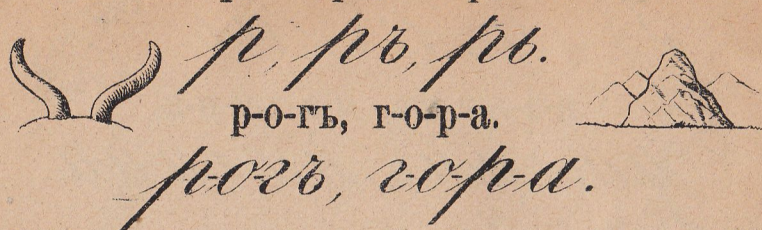 р, ръ, рь.
р-о-гъ, г-о-р-а.
р-о-гъ, г-о-р-а.